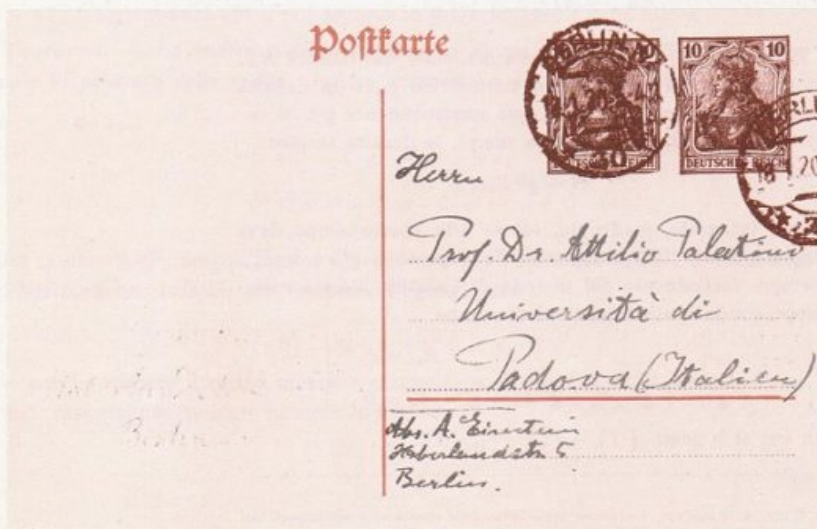 Postkarte
BERLIN
10 10 10
DEUTSCHES REICH DEUTSCHES REICH
Herrn
Prof. Dr. Attilio Palatini
Università di
Padova (Italien)
Abs. A. Einstein
Haberlandstr. 5
Berlin.